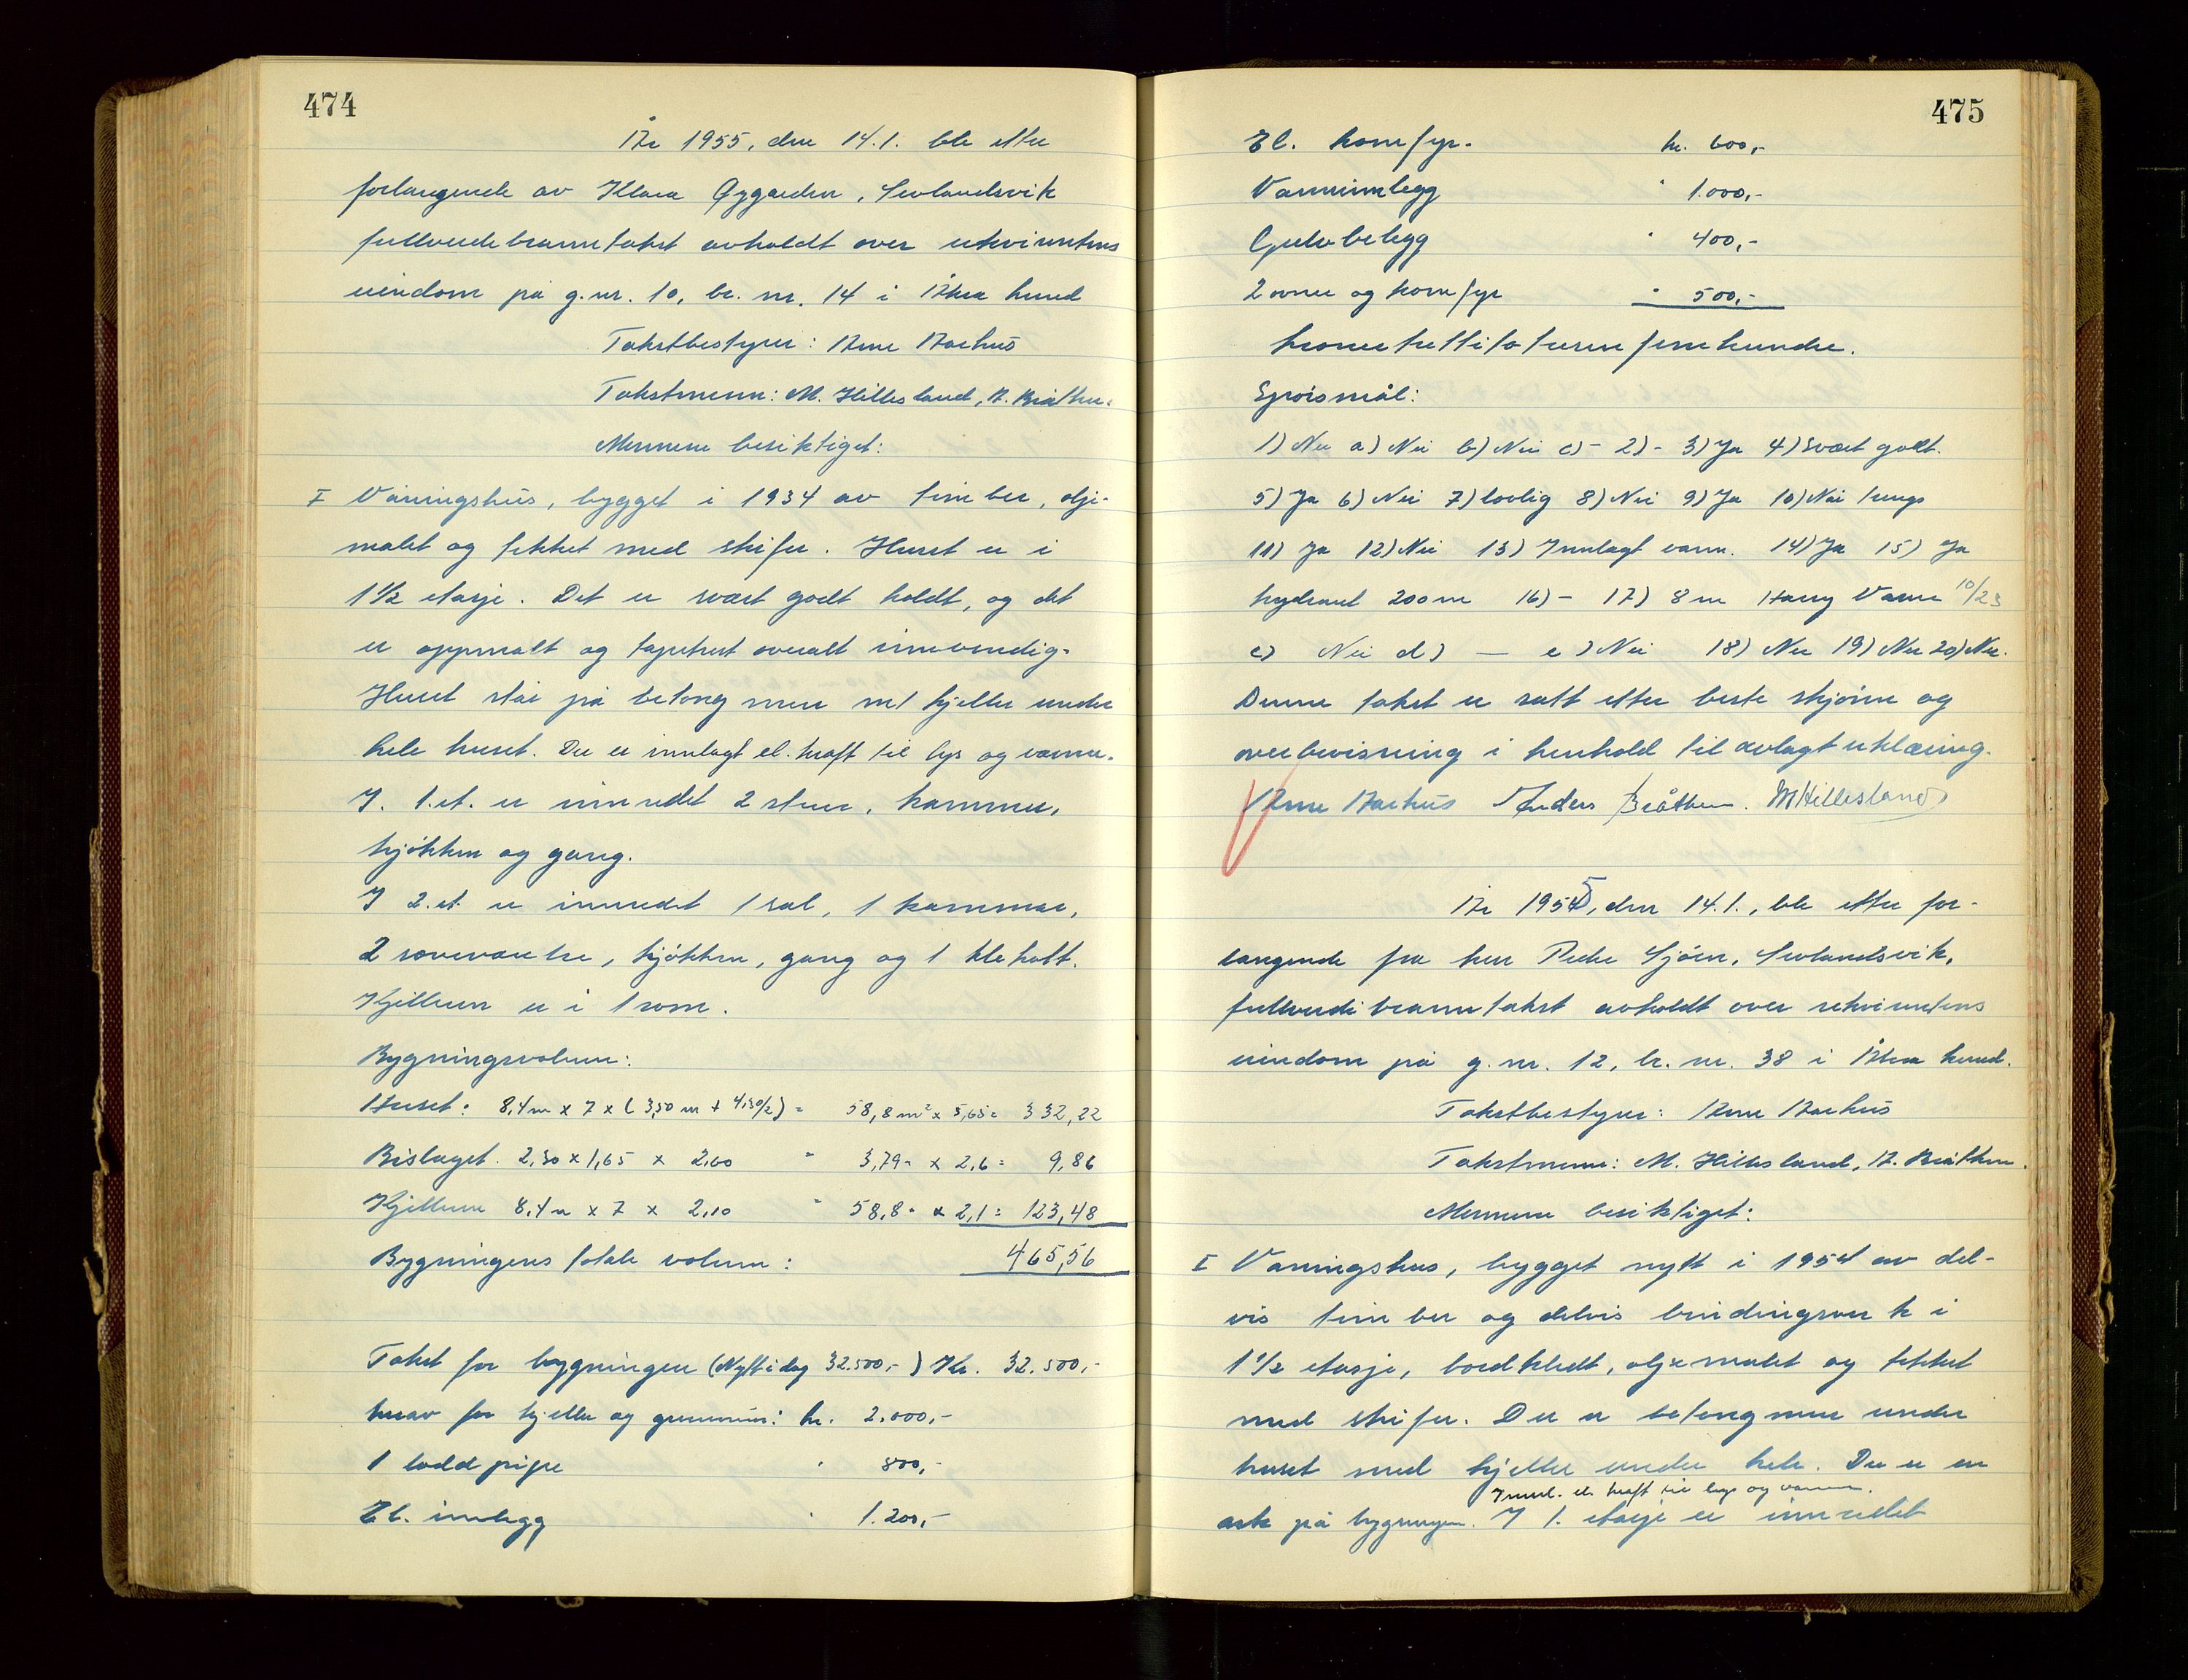 474
År 1955, den 14.1. ble etter
forlangende av Klara Øygarden, Sevlandsvik
fullverdebranntakst avholdt over rekvirentens
eiendom på g.nr. 10, br. nr. 14 i Åkra herred
Takstbestyrer: Arne Aarhus
Takstmenn: M. Hillesland, A. Bråthen.
Mennene besiktiget:
I Våningshus, bygget i 1934 av timber, olje-
malet og tekket med skifer. Huset er i
1 1/2 etasje. Det er svært godt holdt, og det
er oppmalt og tapetsert overalt innvendig.
Huset står på betong mur m/ kjeller under
hele huset. Der er innlagt el. kraft til lys og varme.
I. 1. et. er innredet 2 stuer, kammer,
kjøkken og gang.
I 2. et. er innredet 1 sal, 1 kammer,
2 soveværelse, kjøkken, gang og 1 klekott.
Kjelleren er i 1 rom.
Bygningsvolum:
Huset: 8,4 m x 7 x (3,50 m + 4,30/2) = 58,8 m² x 5,65 = 332,22
Bislaget. 2,30 x 1,65 x 2,60 " 3,79 " x 2,6 = 9,86
Kjelleren 8,4 m x 7 x 2,10 " 58,8 " x 2,1 = 123,48
Bygningens totale volum: 465,56
Takst for bygningen (Nytt i dag 32.500,-) Kr. 32.500,-
herav for kjeller og grunnmur: kr. 2.000,-
1 lodd pipe " 800,-
El. innlegg " 1.200,-
475
El. komfyr. kr. 600,-
Vanninnlegg " 1.000,-
Gulvbelegg " 400,-
2 ovner og komfyr " 500,-
kronertrettitotusenfemhundre.
Spørsmål:
1) Nei a) Nei b) Nei c) - 2) - 3) Ja 4) svært godt.
5) Ja 6) Nei 7) lovlig 8) Nei 9) Ja 10) Nei
11) Ja 12) Nei 13) Innlagt vann. 14) Ja 15) Ja
hydrant 200 m 16) - 17) 8 m Harry Varne 10/23
c) Nei d) — e) Nei 18) Nei 19) Nei 20) Nei.
Denne takst er satt etter beste skjønn og
overbevisning i henhold til avlagt erklæring.
Arne Aarhus Anders Bråthen. M Hillesland
År 1955, den 14.1., ble etter for-
langende fra herr Peder Sjøen, Sevlandsvik,
fullverdibranntakst avholdt over rekvirentens
eiendom på g. nr. 12, br. nr. 38 i Åkra herred.
Takstbestyrer: Arne Aarhus
Takstmenn: M. Hillesland, A. Bråthen.
Mennene besiktiget:
I Våningshus, bygget nytt i 1954 av del-
vis timber og delvis bindingsverk i
1 1/2 etasje, bordkledt, oljemalet og tekket
med skifer. Der er betongmur under
huset med kjeller under hele. Der er en
Innl. el. kraft til lys og varme.
ark på bygningen. I 1. etasje er innredet